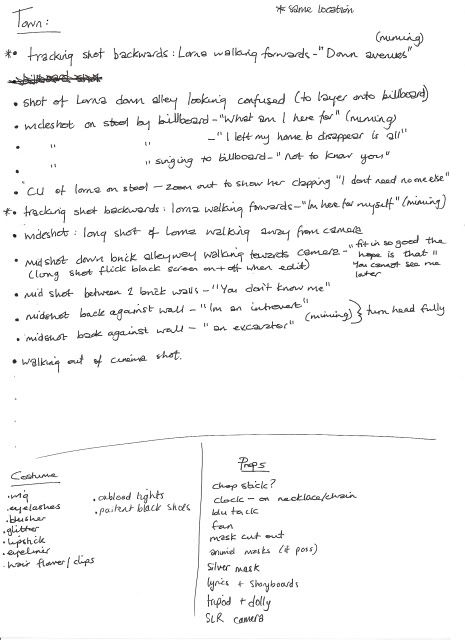 * same location
Town:
(miming)
*• tracking shot backwards: Lorna walking forwards - "Down avenues"
• shot of Lorna down alley looking confused (to layer onto billboard)
• wideshot on stool by billboard - "What am I here for" (miming)
• " " - "I left my home to disappear is all"
• " " singing to billboard - "Not to know you"
• CU of lorna on stool - zoom out to show her clapping "I dont need no me else"
*• tracking shot backwards: lorna walking forwards - "Im here for myself" (miming)
• wideshot: long shot of Lorna walking away from camera
• midshot down brick alleyway walking towards camera - "fit in so good the
(long shot flick black screen on + off when edit) hope is that"
"You cannot see me
later
• mid shot between 2 brick walls - "You don't know me"
• midshot back against wall - "Im an introvert"
(miming) } turn head fully
• midshot back against wall - "an excavator"
• walking out of cinema shot.
Costume
• wig
• eyelashes
• blusher
• glitter
• lipstick
• eyeliner
• hair flower/clips
• patient black shoes
Props
chop stick?
clock - on necklace/chain
blu tack
fan
mask cut out
animal masks (if poss)
silver mask
lyrics + storyboards
tripod + dolly
SLR camera